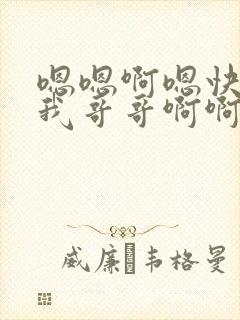 嗯嗯啊嗯快
我哥哥啊啊
威廉·韦格曼